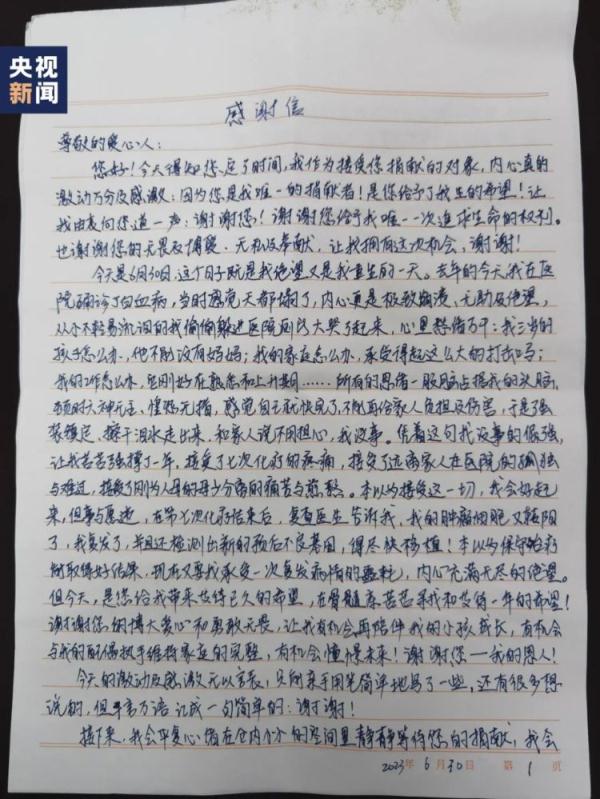 央视
新闻
感谢信
尊敬的爱心人：
您好！今天得知您定了时间，我作为接受您捐献的对象，内心真的
激动万分及感激；因为您是我唯一的捐献者！是您给予了我生的希望！让
我由衷向您道一声：谢谢您！谢谢您给予我唯一一次追求生命的权利。
也谢谢您的无畏及博爱、无私及奉献，让我拥有这次机会，谢谢！
今天是6月30日，这个日子既是我绝望又是我重生的一天。去年的今天，我在医
院确诊了白血病，当时感觉天都塌了，内心真是极致崩溃、无助及绝望，
从小不轻易流泪的我偷偷躲进医院厕所大哭了起来，心里想着万千：我三岁的
孩子怎么办，他不能没有妈妈；我的家庭怎么办，承受得起这么大的打击吗；
我的工作怎么办，它刚好在熟悉和上升期……所有的思绪一股脑占据我的头脑，
顿时六神无主、慌恐无措，感觉自己就快完了，不能再给家人负担及伤害，于是强
装镇定、擦干泪水走出来，和家人说不用担心，我没事。凭着这句我没事的倔强，
让我苦苦强撑了一年，接受了七次化疗的疼痛，接受了远离家人在医院的孤独
与难过，接受了刚为人母的母子分离的痛苦与煎熬。本以为接受这一切，我会好起
来，但事与愿违，在第七次化疗结束后，复查医生告诉我，我的肿瘤细胞又转阳
了，我复发了，并且还检测出新的预后不良基因，得尽快移植！本以为保守治疗
能取得好结果，现在又要我承受一次复发病情的噩耗，内心充满无尽的绝望。
但今天，是您给我带来等待已久的希望，在骨髓库苦苦寻找和等待一年的希望！
谢谢您的博大爱心和勇敢无畏，让我有机会再陪伴我的小孩成长，有机会
与我的配偶执手维持家庭的完整，有机会憧憬未来！谢谢您—我的恩人！
今天的激动及感激无以言表，只能亲手用笔简单地写了一些，还有很多想
说的，但千言万语汇成一句简单的：谢谢！
接下来，我会平复心情在仓内小小的空间里静静等待您的捐献，我会
2023年6月30日 第1页